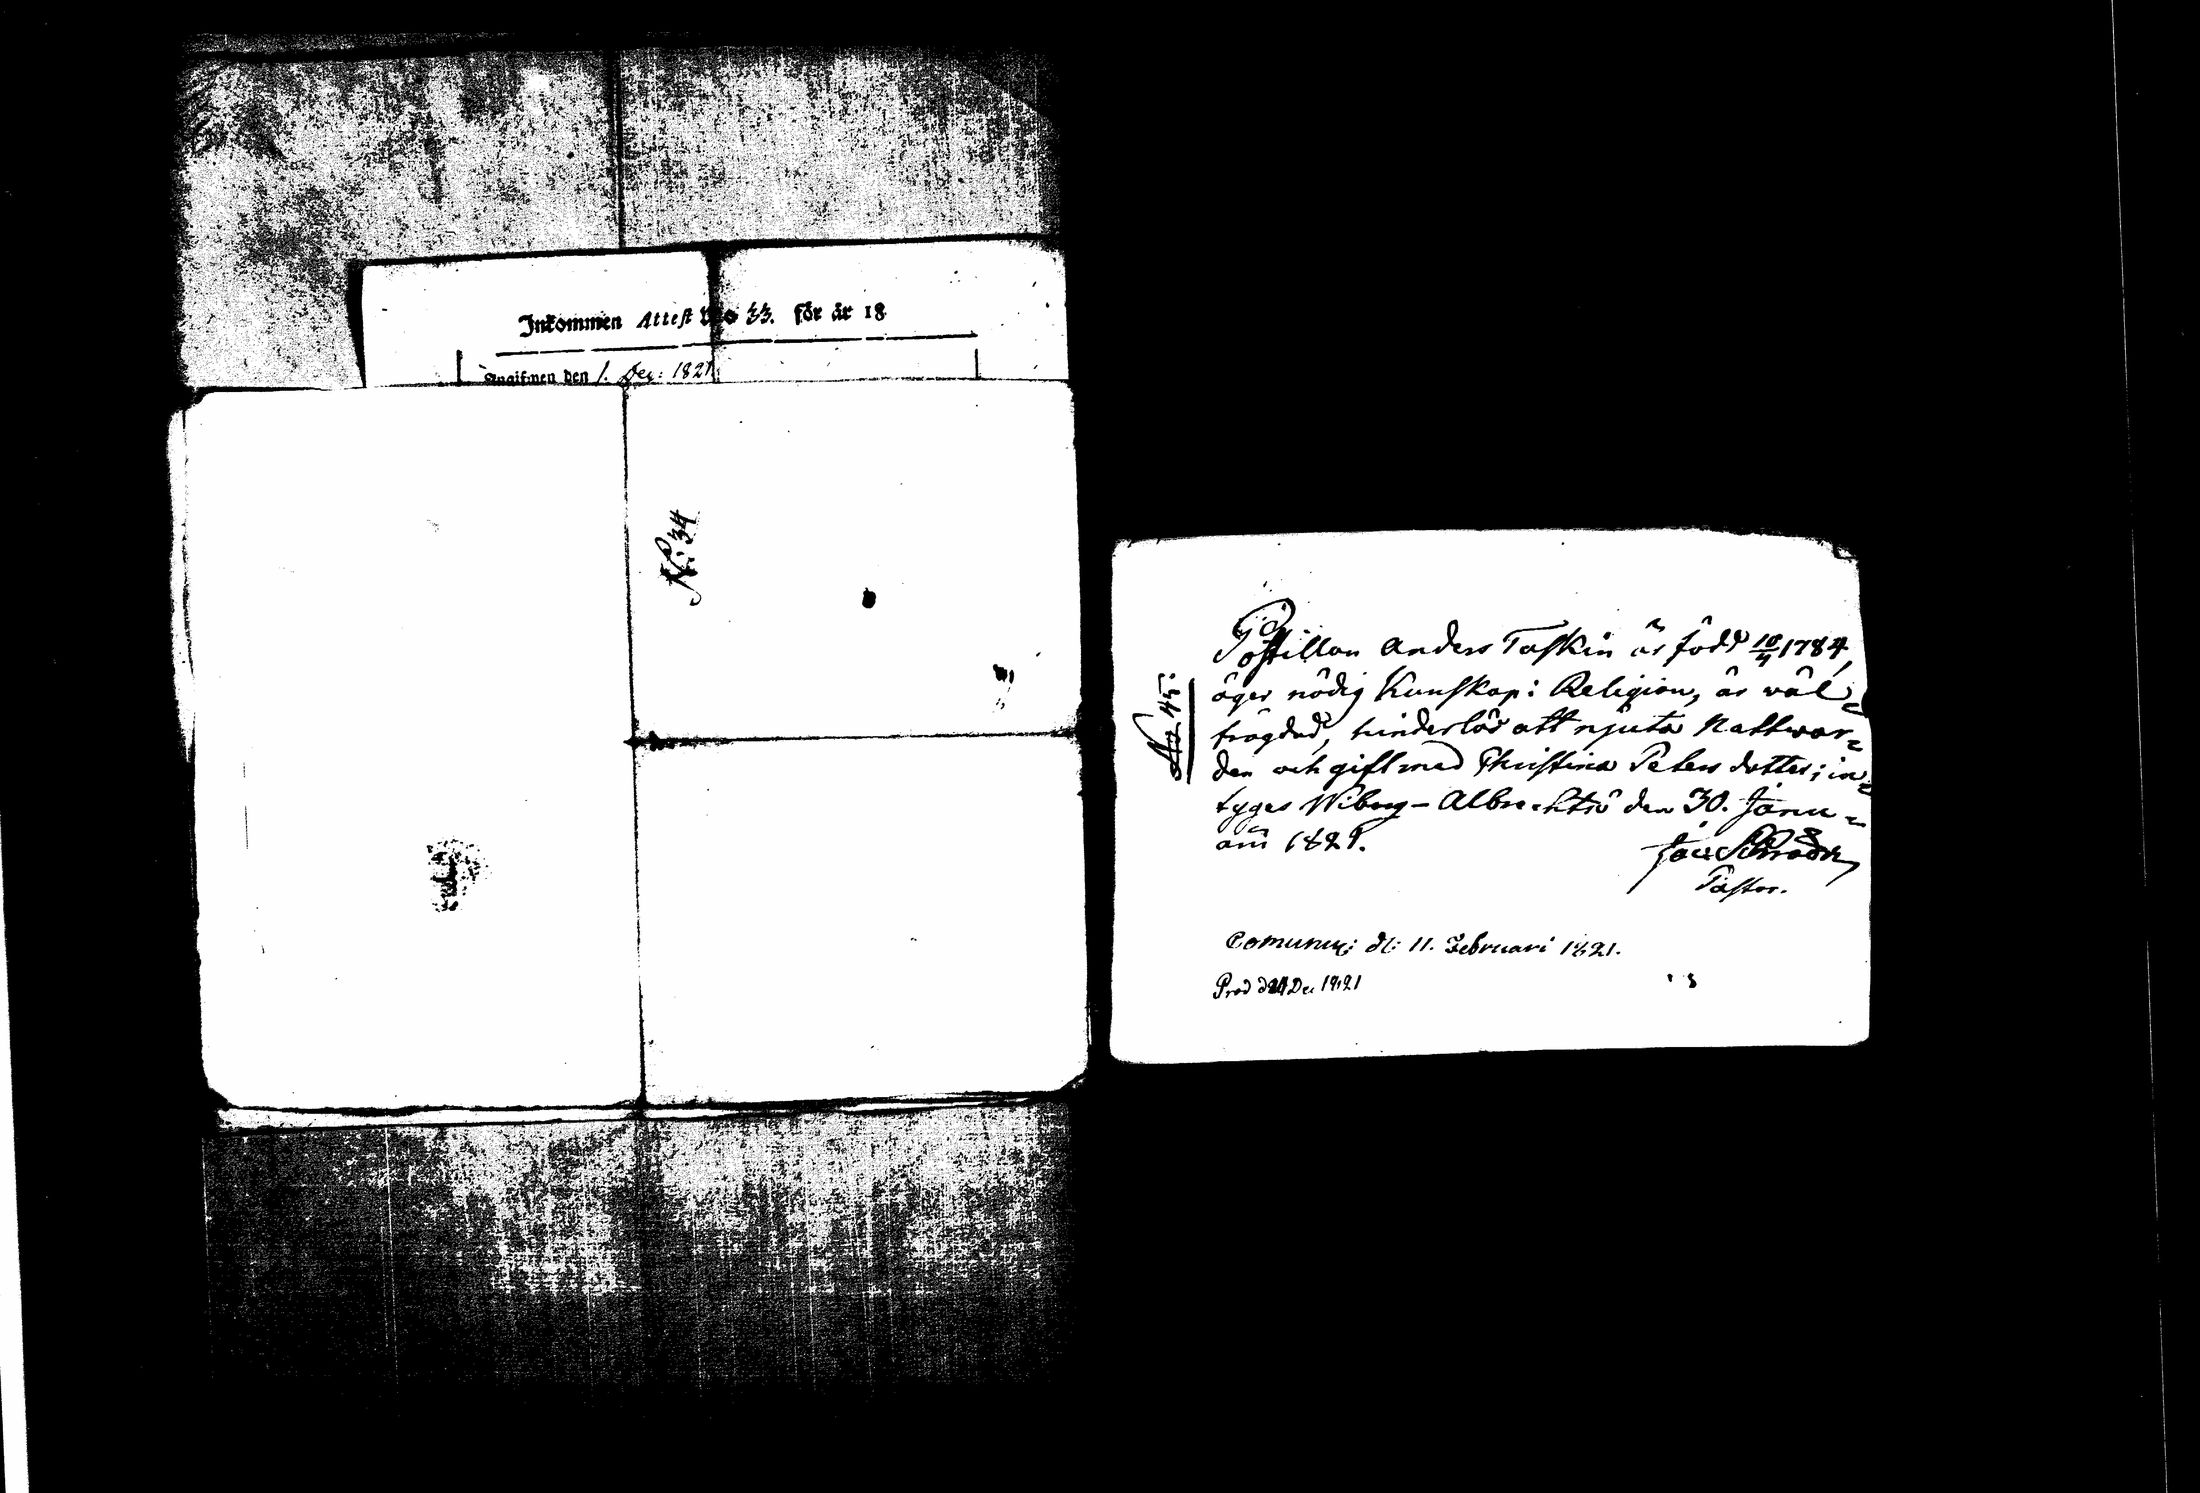 Inkommen Attest No 33. för år 18
Angifwen den 1. Dec: 1821
N: 34
No 45:
Postillon Anders Taskin är född 10/4 1784,
äger nödig Kunskap i Religion, är wäl
frägdad, hinderlös att njuta Nattwar=
den och gift med Christina Petersdotter; in=
tyges Wiborg - Albrechtsö den 30. Janu=
arii 1821.
Pastor.
Comunic: d: 11. Februari 1821.
Prod d Dec 1821